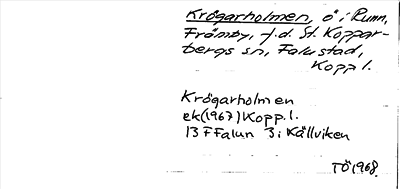 Krögarholmen, ö i Runn,
Främby, f.d. St. Koppar-
bergs sn, Falu stad,
Kopp l.
Krögarholmen
ek (1967) Kopp. l.
13 F Falun 3 i Källviken
TÖ 1968.